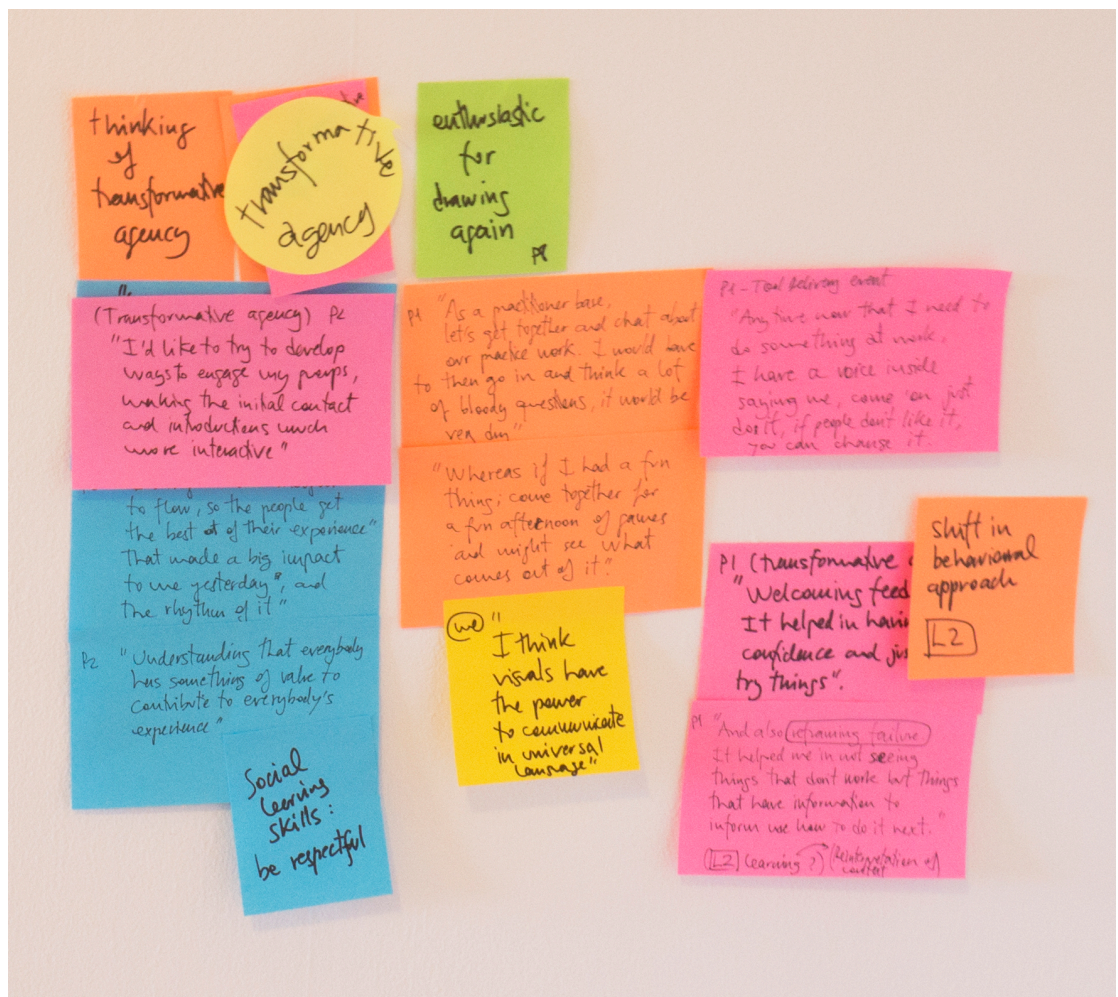 thinking
of
transformative
agency
transformative
agency
enthusiastic
for
drawing
again
(Transformative agency) P2
"I'd like to try to develop
ways to engage my groups,
making the initial contact
and introductions much
more interactive"
to flow, so the people get
the best of their experience"
That made a big impact
to me yesterday", and
the rhythm of it."
P2 "Understanding that everybody
has something of value to
contribute to everybody's
experience"
Social
learning
skills:
be respectful
P1 "As a practitioner base,
let's get together and chat about
our practice work. I would have
to then go in and think a lot
of bloody questions, it would be
very dry"
"Whereas if I had a fun
thing; come together for
a fun afternoon of games
and might see what
comes out of it."
we "
I think
visuals have
the power
to communicate
in universal
language"
P1 - Tool delivery event
"Any time now that I need to
do something at work,
I have a voice inside
saying me, come on just
do it, if people don't like it,
you can change it.
P1 (transformative
"Welcoming feed
It helped in havin
confidence and jus
try things".
shift in
behavioural
approach
L2
P1 "And also reframing failure.
It helped me in not seeing
things that don't work but things
that have information to
inform use how to do it next."
L2 learning?) (Reinterpretation of
context